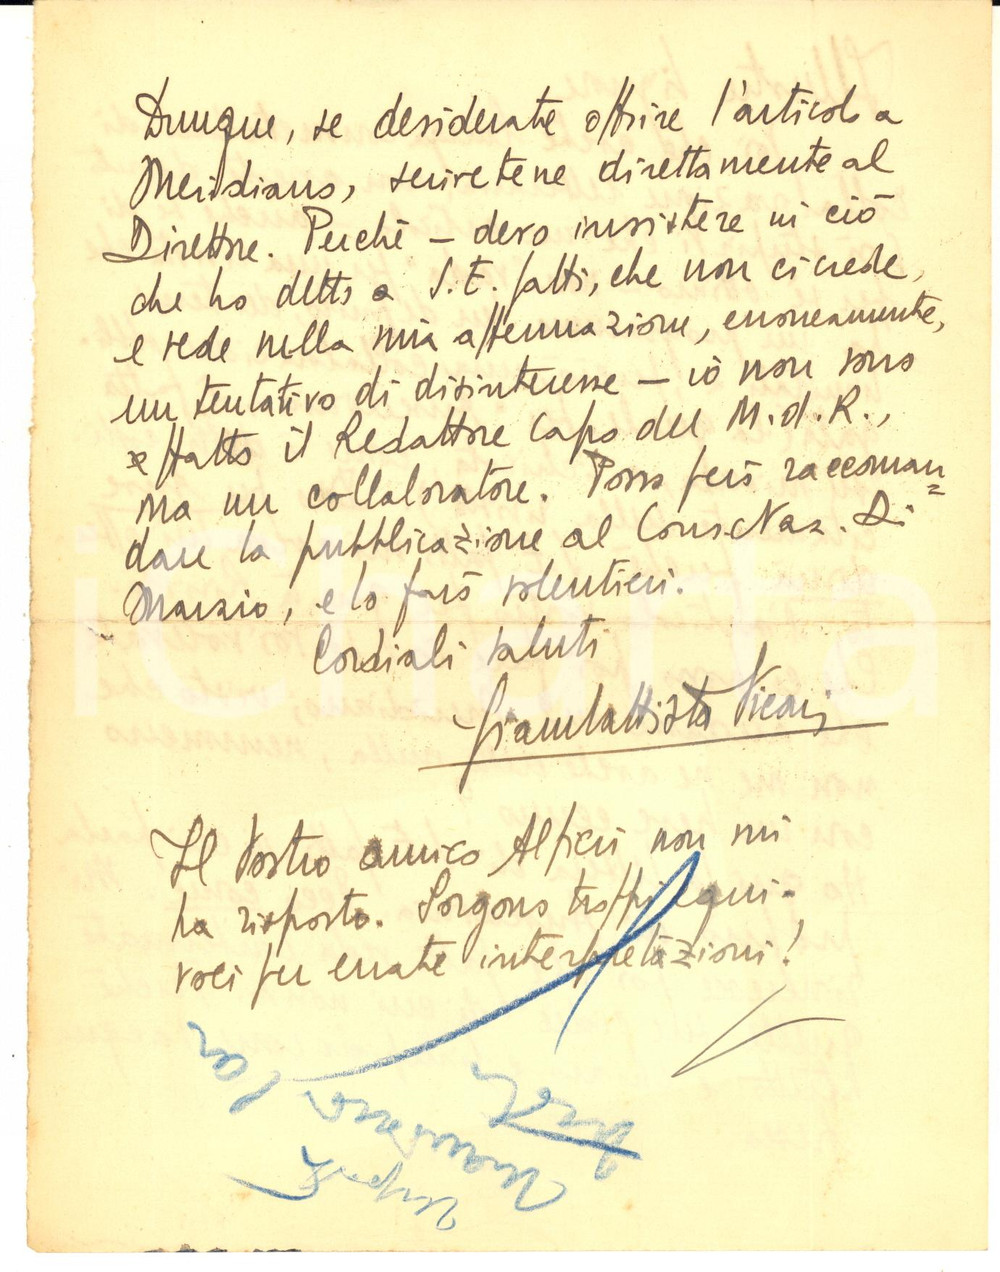 Dunque, se desiderate offrire l'articolo a
Meridiano, scrivetene direttamente al
Direttore. Perchè – devo insistere in ciò
che ho detto a S.E. Fatti, che non ci crede,
e vede nella mia affermazione, erroneamente,
un tentativo di disinteresse – io non sono
affatto il Redattore Capo del M.d.R.,
ma un collaboratore. Posso però raccoman=
dare la pubblicazione al Cons. Naz. Di
Marzio, e lo farò volentieri.
Cordiali saluti
Giambattista Vicari
Il Vostro amico Alfieri non mi
ha risposto. Sorgono troppi equi-
voci per errate interpretazioni!
iCharta